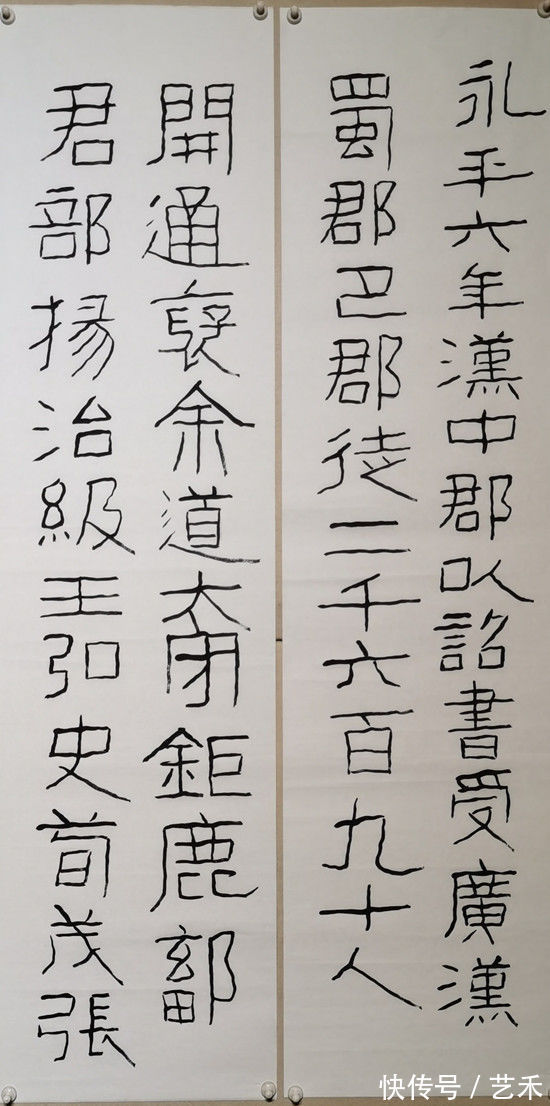 永平六年漢中郡以詔書受廣漢
蜀郡巴郡徒二千六百九十人
開通褒余道太守鉅鹿鄐
君部掾治級王弘史荀茂張
快传号/艺禾